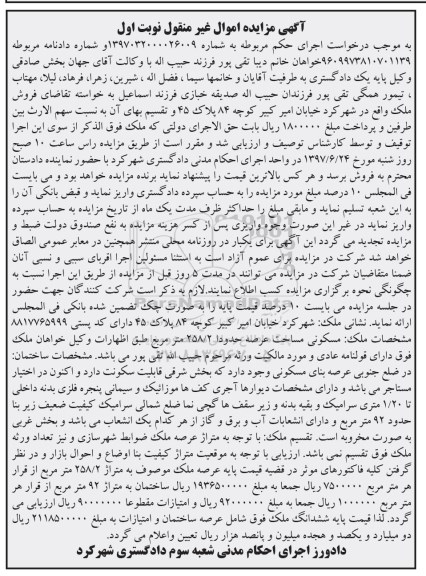 آگهی مزایده اموال غیر منقول نوبت اول
به موجب درخواست اجرای حکم مربوطه به شماره ۱۳۹۷۰۳۲۰۰۰۰۲۶۰۰۹و شماره دادنامه مربوطه
۹۶۰۹۹۷۳۸۱۰۷۰۱۱۳۹خواهان خانم دیبا تقی پور فرزند حبیب اله با وکالت آقای جهان بخش صادقی
وکیل پایه یک دادگستری به طرفیت آقایان و خانمها سیما ، فضل اله ، شیرین، زهرا، فرهاد، لیلا، مهتاب
، تیمور همگی تقی پور فرزندان حبیب اله صدیقه خبازی فرزند اسماعیل به خواسته تقاضای فروش
ملک واقع در شهرکرد خیابان امیر کبیر کوچه ۸۴ پلاک ۴۵ و تقسیم بهای آن به نسبت سهم الارث بین
طرفین و پرداخت مبلغ ۱۸۰۰۰۰۰ ریال بابت حق الاجرای دولتی که ملک فوق الذکر از سوی این اجرا
توقیف و توسط کارشناس توصیف و ارزیابی شد و مقرر است از طریق مزایده راس ساعت ۱۰ صبح
روز شنبه مورخ ۱۳۹۷/۶/۲۴ در واحد اجرای احکام مدنی دادگستری شهرکرد با حضور نماینده دادستان
محترم به فروش برسد و هر کس بالاترین قیمت را پیشنهاد نماید برنده مزایده خواهد بود و می بایست
فی المجلس ۱۰ درصد مبلغ مورد مزایده را به حساب سپرده دادگستری واریز نماید و قبض بانکی آن را
به این شعبه تسلیم نماید و مابقی مبلغ را حداکثر ظرف مدت یک ماه از تاریخ مزایده به حساب سپرده
واریز نماید در غیر این صورت وجوه واریزی پس از کسر هزینه مزایده به نفع صندوق دولت ضبط و
مزایده تجدید می گردد این آگهی برای یکبار در روزنامه محلی منتشر همچنین در معابر عمومی الصاق
خواهد شد شرکت در مزایده برای عموم آزاد است به استثنا مسئولین اجرا اقربای سببی و نسبی آنان
ضمنا متقاضیان شرکت در مزایده می توانند در مدت ۵ روز قبل از مزایده از طریق این اجرا نسبت به
چگونگی نحوه برگزاری مزایده کسب اطلاع نمایند.لازم به ذکر است شرکت کنندگان جهت حضور
در جلسه مزایده می بایست ۱۰ درصد قیمت پایه را به صورت چک تضمین شده بانکی فی المجلس
ارائه نماید. نشانی ملک: شهرکرد خیابان امیر کبیر کوچه ۸۴ پلاک ۴۵ دارای کد پستی ۸۸۱۷۷۶۵۹۹۹
مشخصات ملک: مسکونی مساحت عرصه حدودا ۲۵۸/۲ متر مربع طبق اظهارات وکیل خواهان ملک
فوق دارای قولنامه عادی و مورد مالکیت ورثه مرحوم حبیب الله تقی پور می باشد. مشخصات ساختمان:
در ضلع جنوبی عرصه بنای مسکونی وجود دارد که بخش شرقی قابلیت سکونت دارد و اکنون در اختیار
مستاجر می باشد و دارای مشخصات دیوارها آجری کف ها موزائیک و سیمانی پنجره فلزی بدنه داخلی
تا ۱/۲۰ متری سرامیک و بقیه بدنه و زیر سقف ها گچی نما ضلع شمالی سرامیک کیفیت ضعیف زیر بنا
حدود ۹۲ متر مربع و دارای انشعابات آب و برق و گاز از هر کدام یک انشعاب می باشد و بخش غربی
به صورت مخروبه است. تقسیم ملک: با توجه به متراژ عرصه ملک ضوابط شهرسازی و نیز تعداد ورثه
ملک فوق تقسیم نمی باشد. ارزیابی با توجه به موقعیت متراژ کیفیت بنا اوضاع و احوال بازار و در نظر
گرفتن کلیه فاکتورهای موثر در قضیه قیمت پایه عرصه ملک موصوف به متراژ ۲۵۸/۲ متر مربع از قرار
هر متر مربع ۷۵۰۰۰۰۰ ریال جمعا به مبلغ ۱۹۳۶۵۰۰۰۰۰ ریال ساختمان به متراژ ۹۲ متر مربع از قرار هر
متر مربع ۱۰۰۰۰۰۰ ریال جمعا به مبلغ ۹۲۰۰۰۰۰۰ ریال و امتیازات مقطوعا ۹۰۰۰۰۰۰۰ ریال ارزیابی می
گردد. لذا قیمت پایه ششدانگ ملک فوق شامل عرصه ساختمان و امتیازات به مبلغ ۲۱۱۸۵۰۰۰۰۰ ریال
دو میلیارد و یکصد و هجده میلیون و پانصد هزار ریال تعیین واعلام می گردد.
دادورز اجرای احکام مدنی شعبه سوم دادگستری شهرکرد